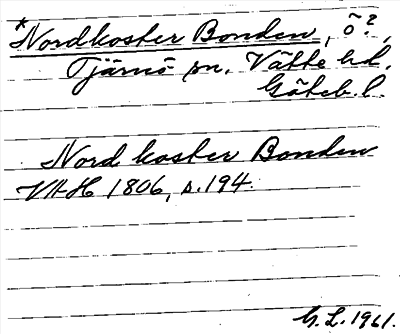 *Nordkoster Bonden, ö?,
Tjärnö sn. Vätte hd.
Göteb. l.
Nord koster Bonden
VHH 1806, s. 194.
G. L. 1961.